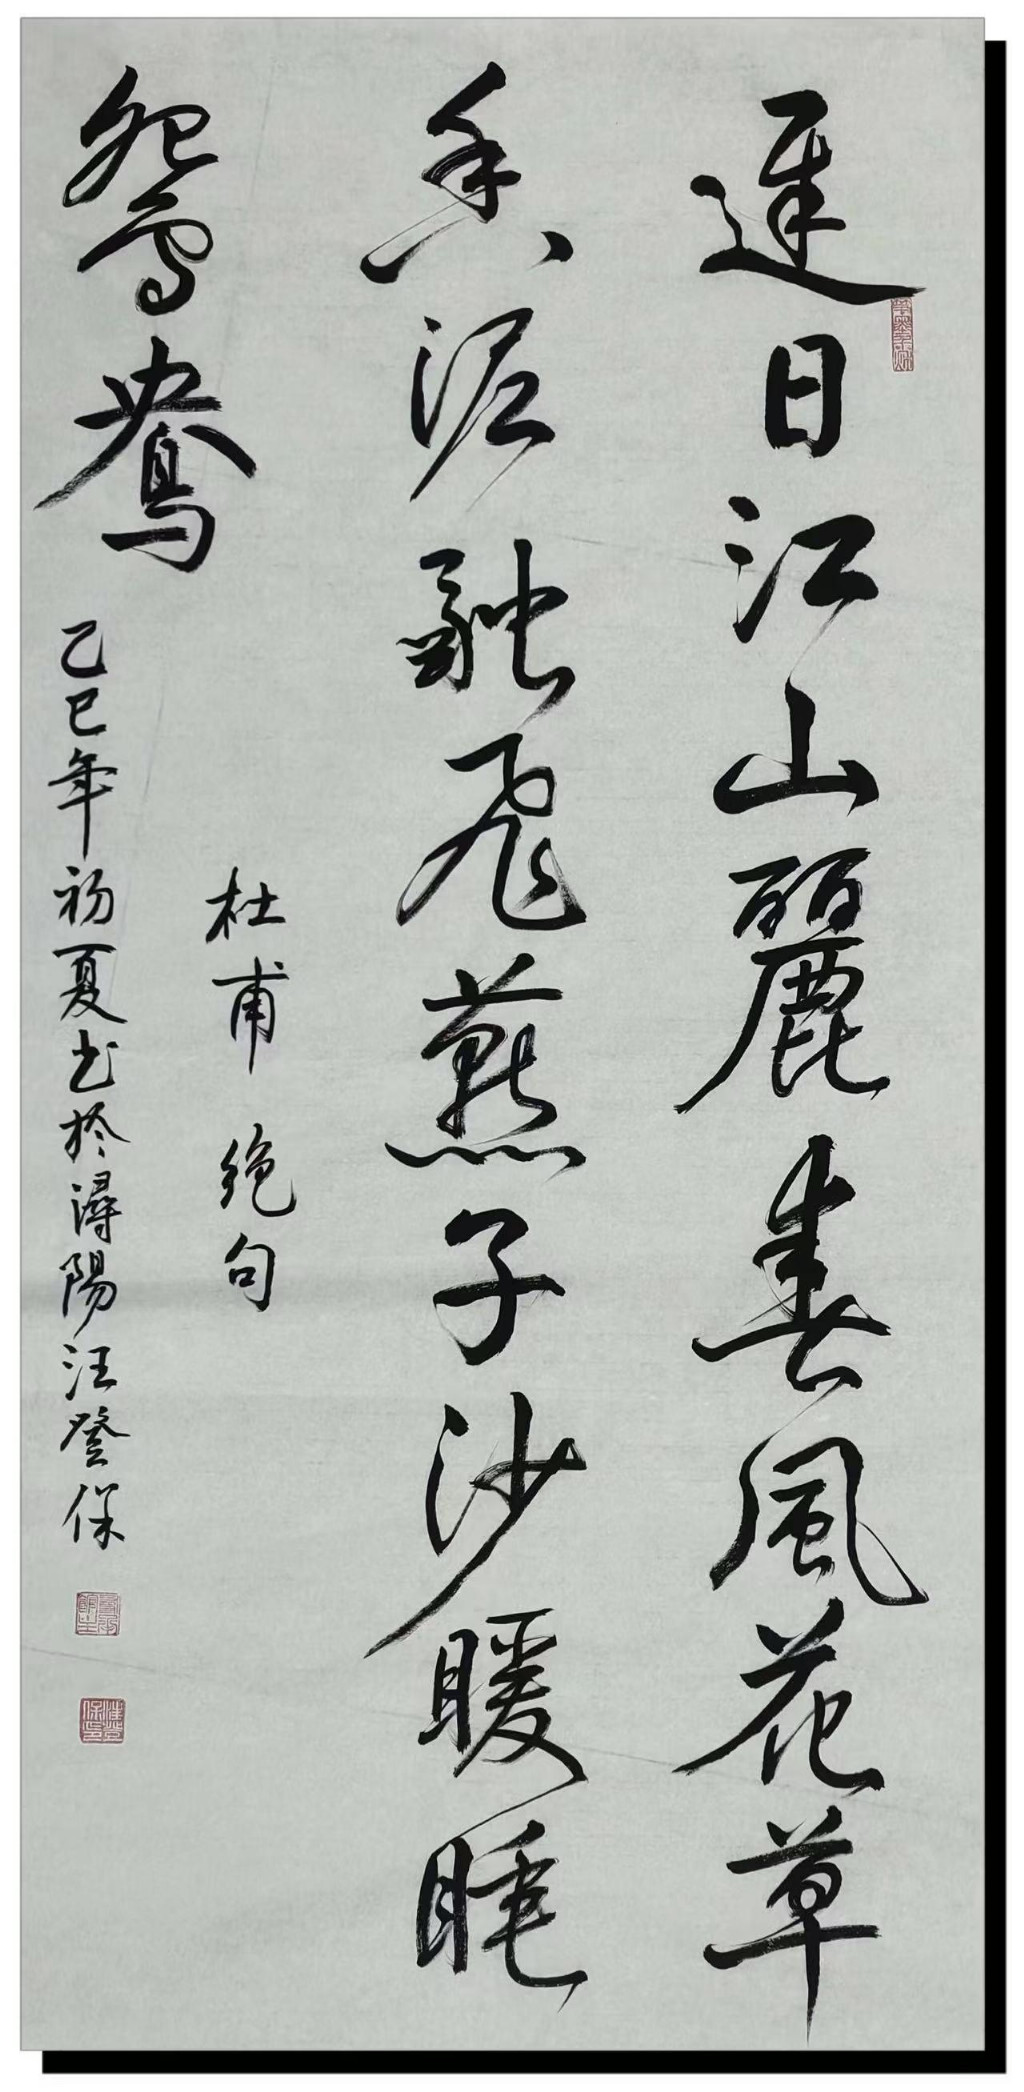 遲日江山麗春風花草
香泥融飛燕子沙暖睡
鴛鴦
杜甫 绝句
乙巳年初夏书於潯陽汪登保